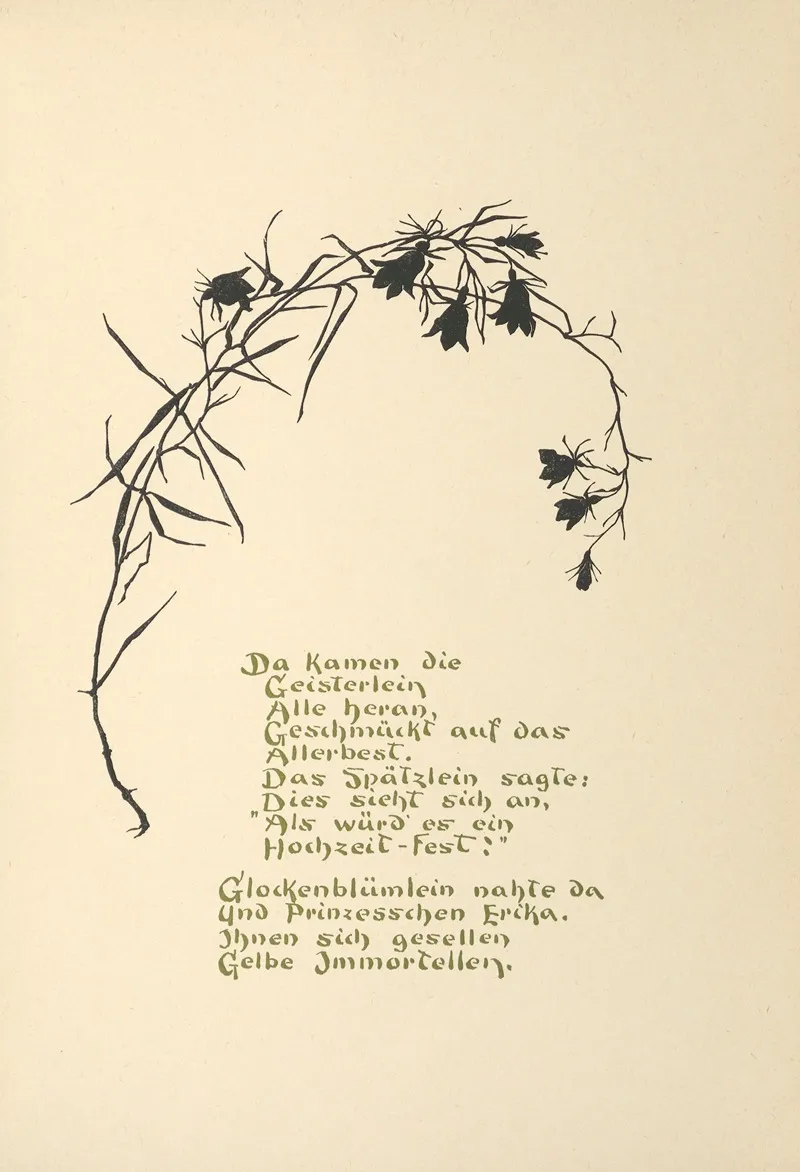 Da Kamen die
Geisterlein
Alle heran,
Geschmückt auf das
Allerbest.
Das Spätzlein sagte:
Dies sieht sich an,
"Als würd' es ein
Hochzeit-Fest!"
Glockenblümlein nahte da
Und Prinzesschen Erika.
Ihnen sich gesellen
Gelbe Immortellen.